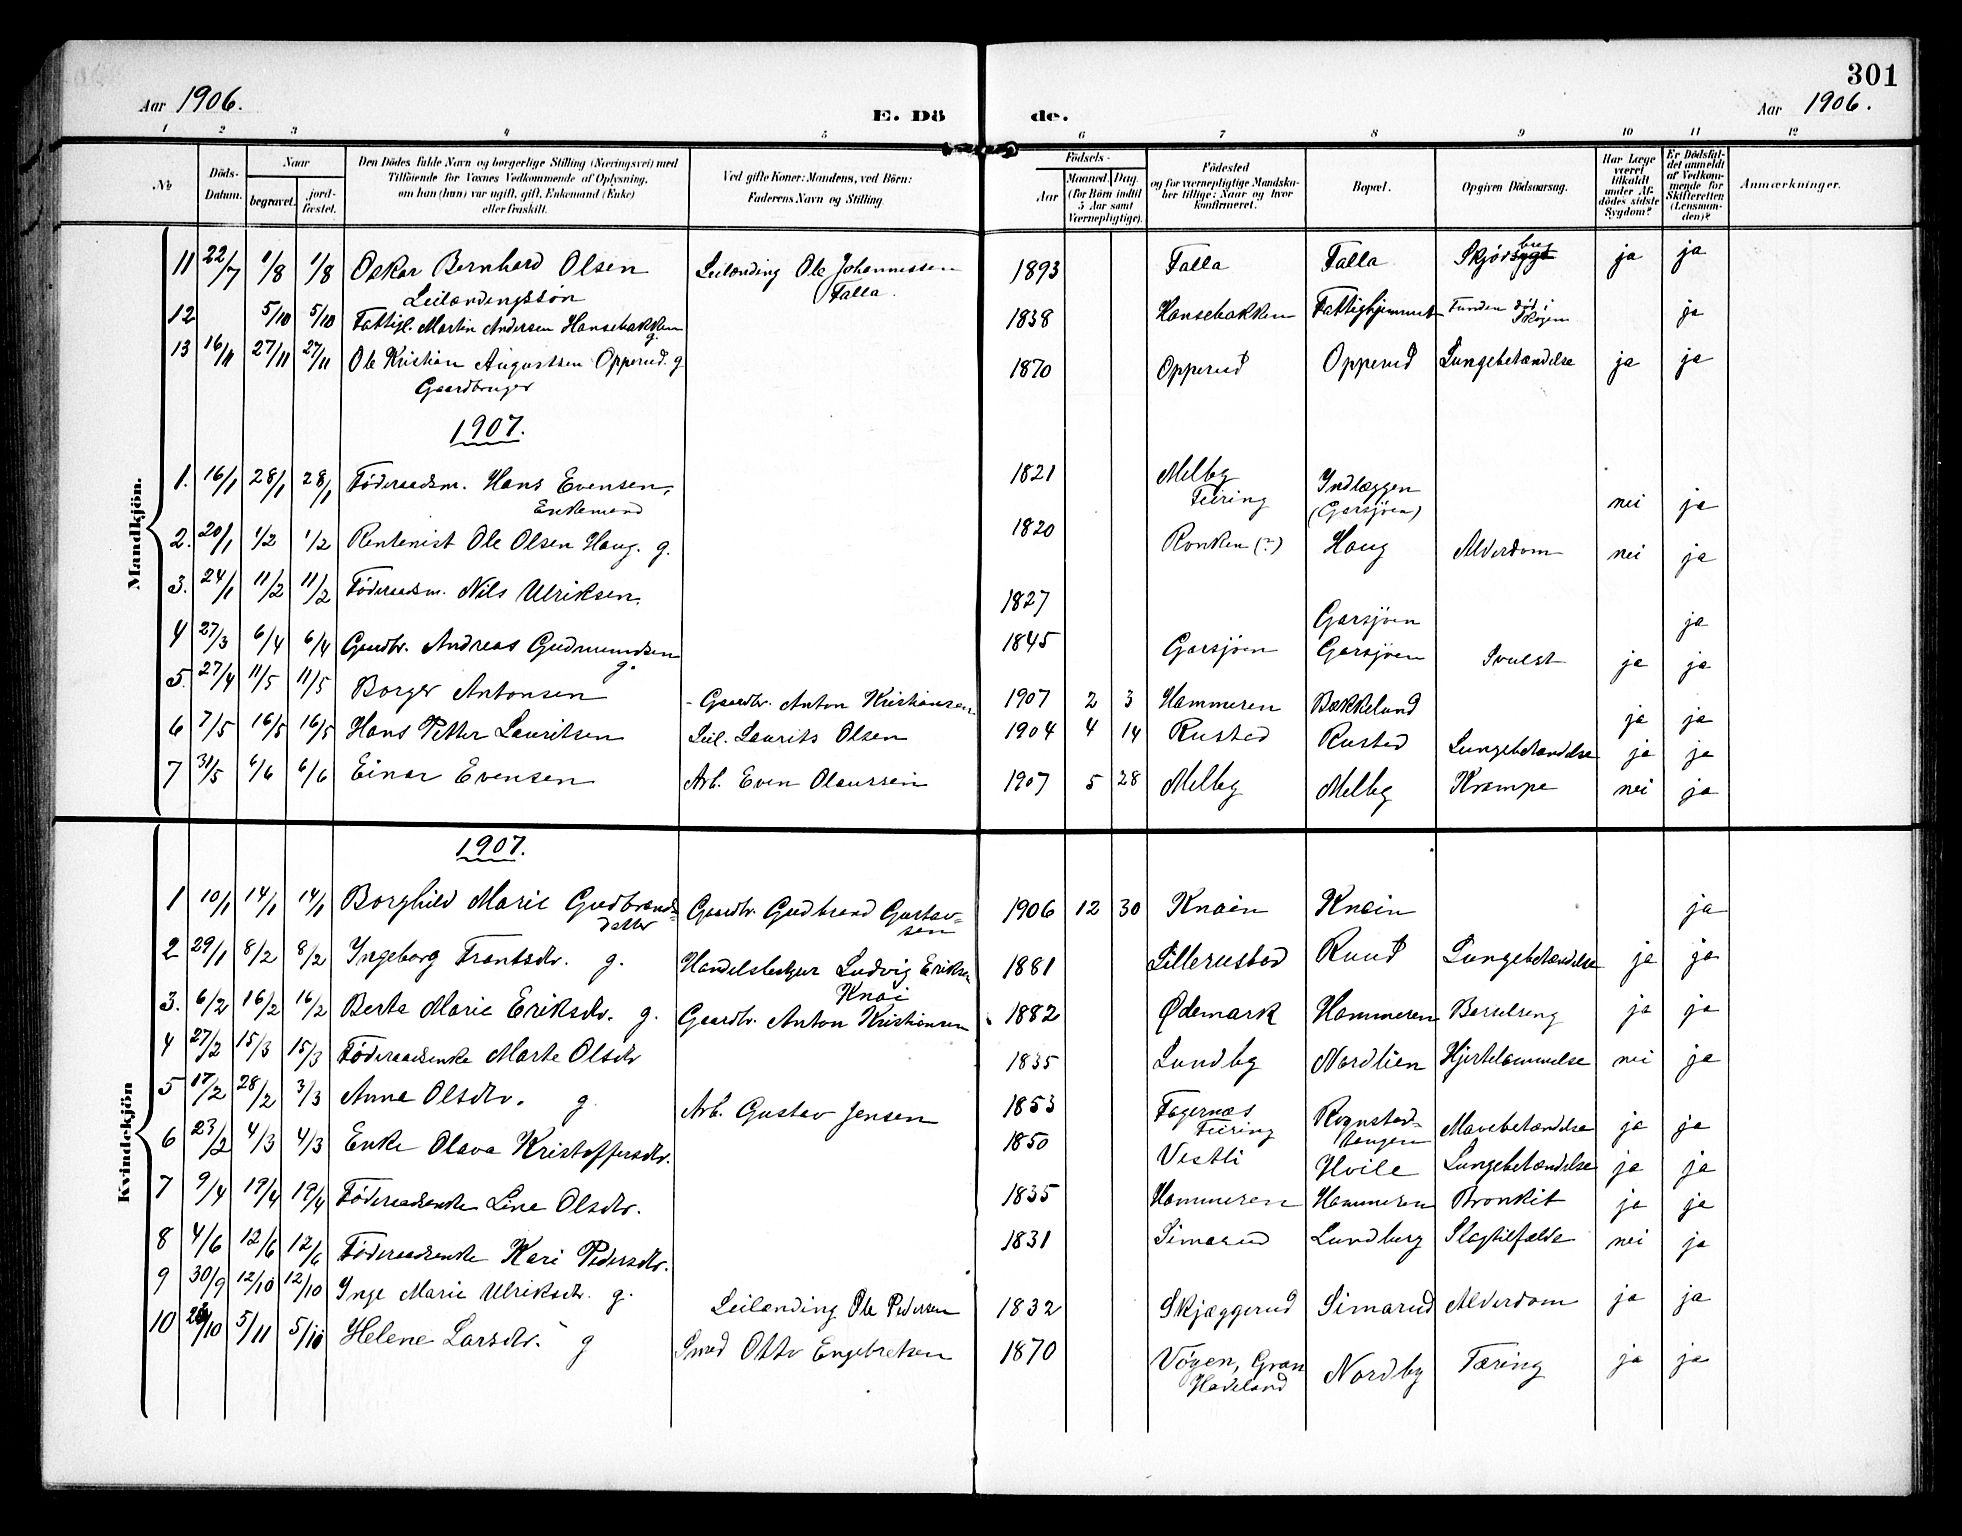 301
Aar 1906.
E. Dö de.
Aar 1906.
1 2 3 4 5 6 7 8 9 10 11 12
№
Döds-Datum.
Naar
begravet.
jord-fæstet.
Den Dödes fulde Navn og borgerlige Stilling (Næringsvei) med
Tilföiende for Voxnes Vedkommende af Oplysning,
om han (hun) var ugift, gift, Enkemand (Enke)
eller fraskilt.
Ved gifte Koner: Mandens, ved Börn:
Faderens Navn og Stilling.
Födsels-
Aar
Maaned. Dag.
(for Börn indtil
5 Aar samt
Værnepligtige).
Födested
og for værnepligtige Mandska-
ber tillige: Naar og hvor
konfirmeret.
Bopæl.
Opgiven Dödsaarsag.
Har Læge
været
tilkaldt
under Af-
dödes sidste
Sygdom?
Er Dödsfal-
det anmeldt
af Vedkom-
mende for
Skifteretten
(Lensman-
den)?
Anmærkninger.
Mandkjön.
11 22/7 1/8 1/8 Oskar Bernhard Olsen Leilænding Ole Johannessen 1893 Falla Falla Skjørbug ja ja
Leilændingssøn Falla.
12 5/10 5/10 Fattigl. Martin Andersen Hansebakken g. 1838 Hansebakken Fattighjemmet Funden død i Skogen ja
13 16/11 27/11 27/11 Ole Kristian Augustsen Opperud. g 1870 Opperud Opperud Lungebetændelse ja ja
Gaardbruger
1907.
1. 16/1 28/1 28/1 Föderaadsm. Hans Evensen, 1821 Melby Indlæggen nei ja
Enkemand Feiring (Garsjøen)
2. 20/1 1/2 1/2 Rentenist Ole Olsen Haug. g. 1820 Ronken (?) Haug Alderdom nei ja
3. 24/1 11/2 11/2 Föderaadsm. Nils Ulriksen. 1827 Garsjøen ja
4 27/3 6/4 6/4 Gaardbr. Andreas Gudmundsen g. 1845 Garsjøen Garsjøen Svulst ja ja
5. 27/4 11/5 11/5 Borger Antonsen - Gaardbr. Anton Kristiansen 1907 2 3 Hammeren Bakkelund ja ja
6 7/5 16/5 16/5 Hans Petter Lauritsen Leil. Laurits Olsen 1904 4 14 Rustad Rustad Lungebetændelse ja ja
7 31/5 6/6 6/6 Einar Evensen Arb. Even Olaussen 1907 5 28 Melby Melby Krampe nei ja
Kvindekjön
1907.
1 10/1 14/1 14/1 Borghild Marie Gudbrands- Gaardbr. Gudbrand Gustav- 1906 12 30 Knain Knain ja
datter sen
2 29/1 8/2 8/2 Ingeborg Frantsdtr. g. Handelsbestyrer Ludvig Eriksen 1881 Lillerustad Ruud Lungebetændelse ja ja
Knai
3. 6/2 16/2 16/2 Berte Marie Eriksdtr. g. Gaardbr. Anton Kristiansen 1882 Ødemark Hammeren Barselseng ja ja
4 27/2 15/3 15/3 Föderaadsenke Marte Olsdtr 1835 Lundby Nordlien Hjertelammelse nei ja
5 17/2 28/2 3/3 Anne Olsdtr. g. Arb. Gustav Jensen 1853 Fagernæs Rognstad- Mavebetændelse ja ja
Feiring tangen
6 23/2 4/3 4/3 Enke Olava Kristoffersdtr. 1850 Vestli Hvile Lungebetændelse ja ja
7 9/4 19/4 19/4 Föderaadsenke Line Olsdtr. 1835 Hammeren Hammeren Bronkit ja ja
8 4/6 12/6 12/6 Föderaadsenke Kari Pedersdtr. 1831 Simarud Lundberg Slagtilfælde nei ja
9 30/9 12/10 12/10 Inge Marie Ulriksdtr. g. Leilænding Ole Pedersen 1832 Skjæggerud Simarud Alderdom ja ja
10 5/11 5/10 Helene Larsdtr. g Smed Otto Engebretsen 1870 Vøyen, Gran Nordby Tæring ja ja
Hadeland